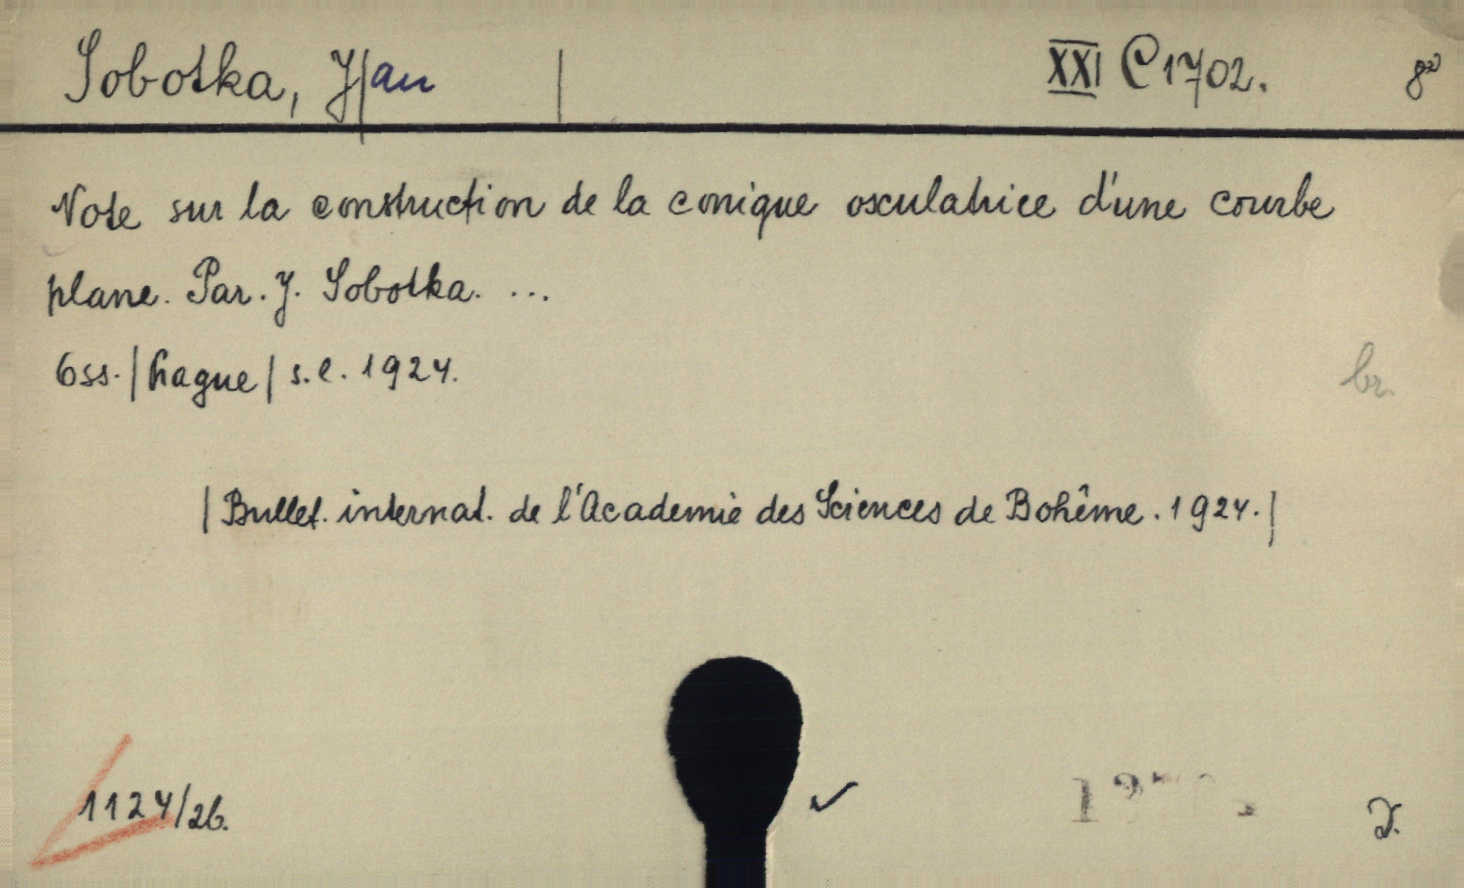 Sobotka, J|an | XXI C 1702. 8º
Note sur la construction de la conique osculatrice d'une courbe
plane. Par. J. Sobotka. ...
6ss. |Prague| s.l. 1924.
br.
|Bullet. internat. de l'Academie des Sciences de Bohême. 1924.|
1124/26.